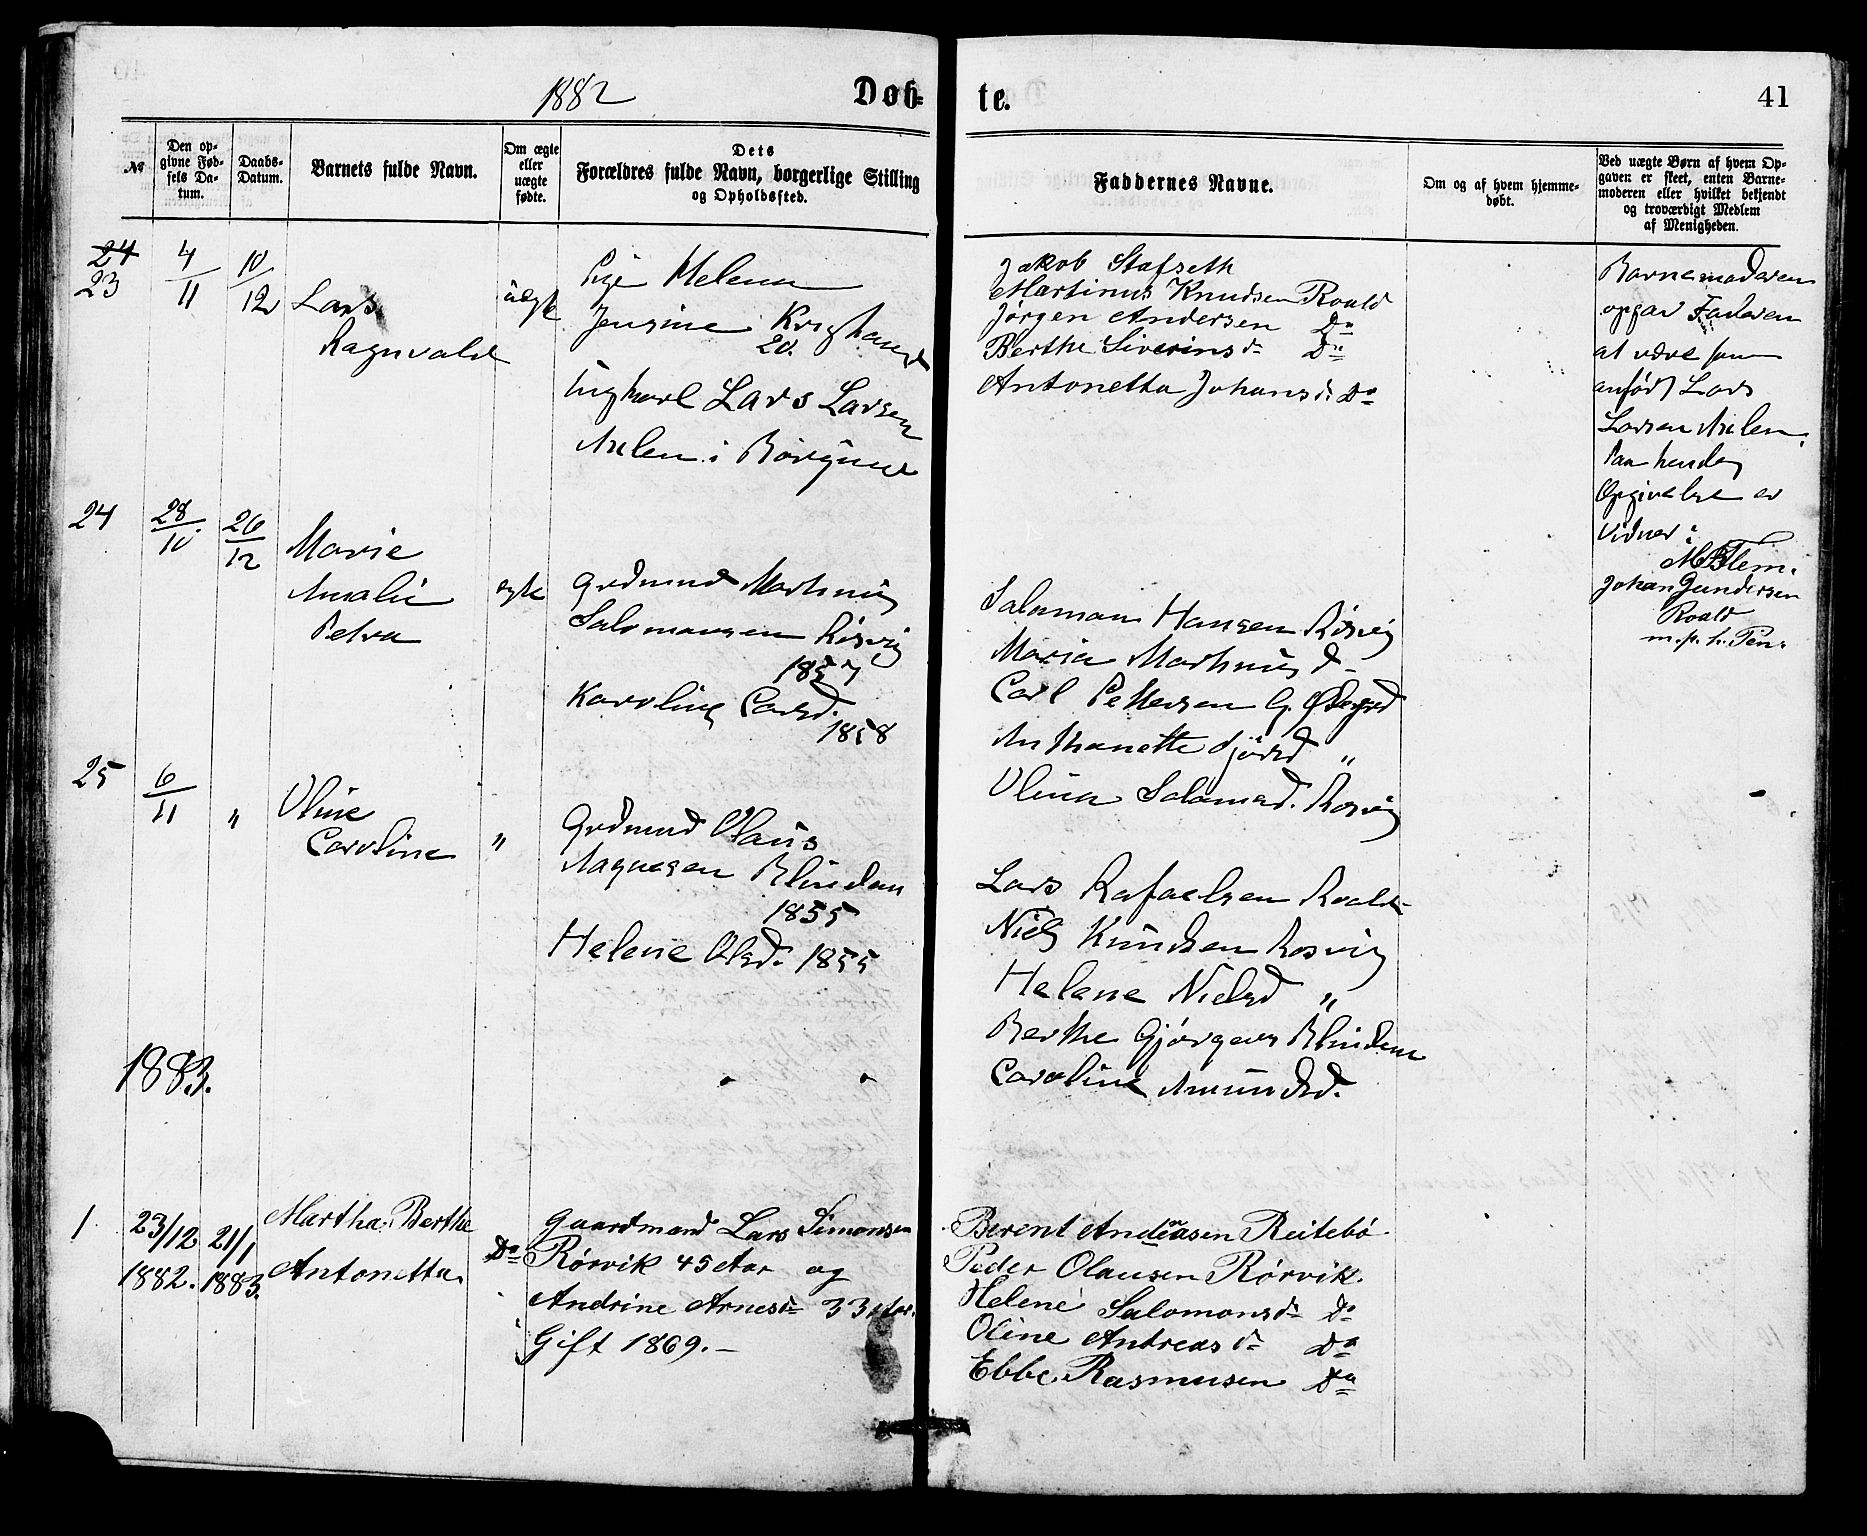 1882
Døb-
te.
41
№
Den op-
givne Fød-
sels Da-
tum.
Daabs-
Datum.
Barnets fulde Navn.
Om ægte
eller
uægte
fødte.
Dets
Forældres fulde Navn, borgerlige Stilling
og Opholdssted.
Faddernes Navne.
Om og af hvem hjemme-
døbt.
Ved uægte Børn af hvem Op-
gaven er skeet, enten Barne-
moderen eller hvilket bekjendt
og troværdigt Medlem
af Menigheden.
24
23
4/11
10/12
Lars
Ragnvald
uægte
Pige Helena
Jensine
20.
Ungkarl Lars Larsen
Aalen i Borgund
Jakob Stafseth
Martinus Knudsen Roald
Jørgen Andersen Do
Berthe Siverinsd. Do
Antonetta Johansd. Do
Barnemoderen
opgav Faderen
at være som
anført Lars
Larsen Aalen.
Paa hendes
Opgivelse er
Vidner:
M Flem.
Johan Gundersen
Roald
m. p. P.
24
28/10
26/12
Marie
Amalie
Petra
ægte
Grdmand Martinus
Salomonsen Røsvig
1857
Karoline Carsd.
1858
Salomon Hansen Røsvig
Maria Martinusd
Carl Pettersen G.
Anthanette "
Olina Salomosd. Rosvig
25
6/11
"
Oline
Caroline
"
Grdmand Olaus
Aagnesen Blindem
1855
Helene Olsd. 1855
Lars Rafaelsen Roald
Niels Knudsen Rosvig
Helene Nielsd "
Berthe Gjørgens Blindem
Caroline Amundsd.
1883.
1
23/12
1882.
21/1
1883.
Martha Berthe
Antonetta.
Do
Gaardmand Lars Simonsen
Rørvik 45 Aar og
Andrine Arnesd 33 Aar.
Gift 1869.—
Berent Andreasen Reitebø
Peder Olausen Rørvik.
Helene Salomonsd Do
Oline Andreasd Do
Ebbe Rasmusen Do